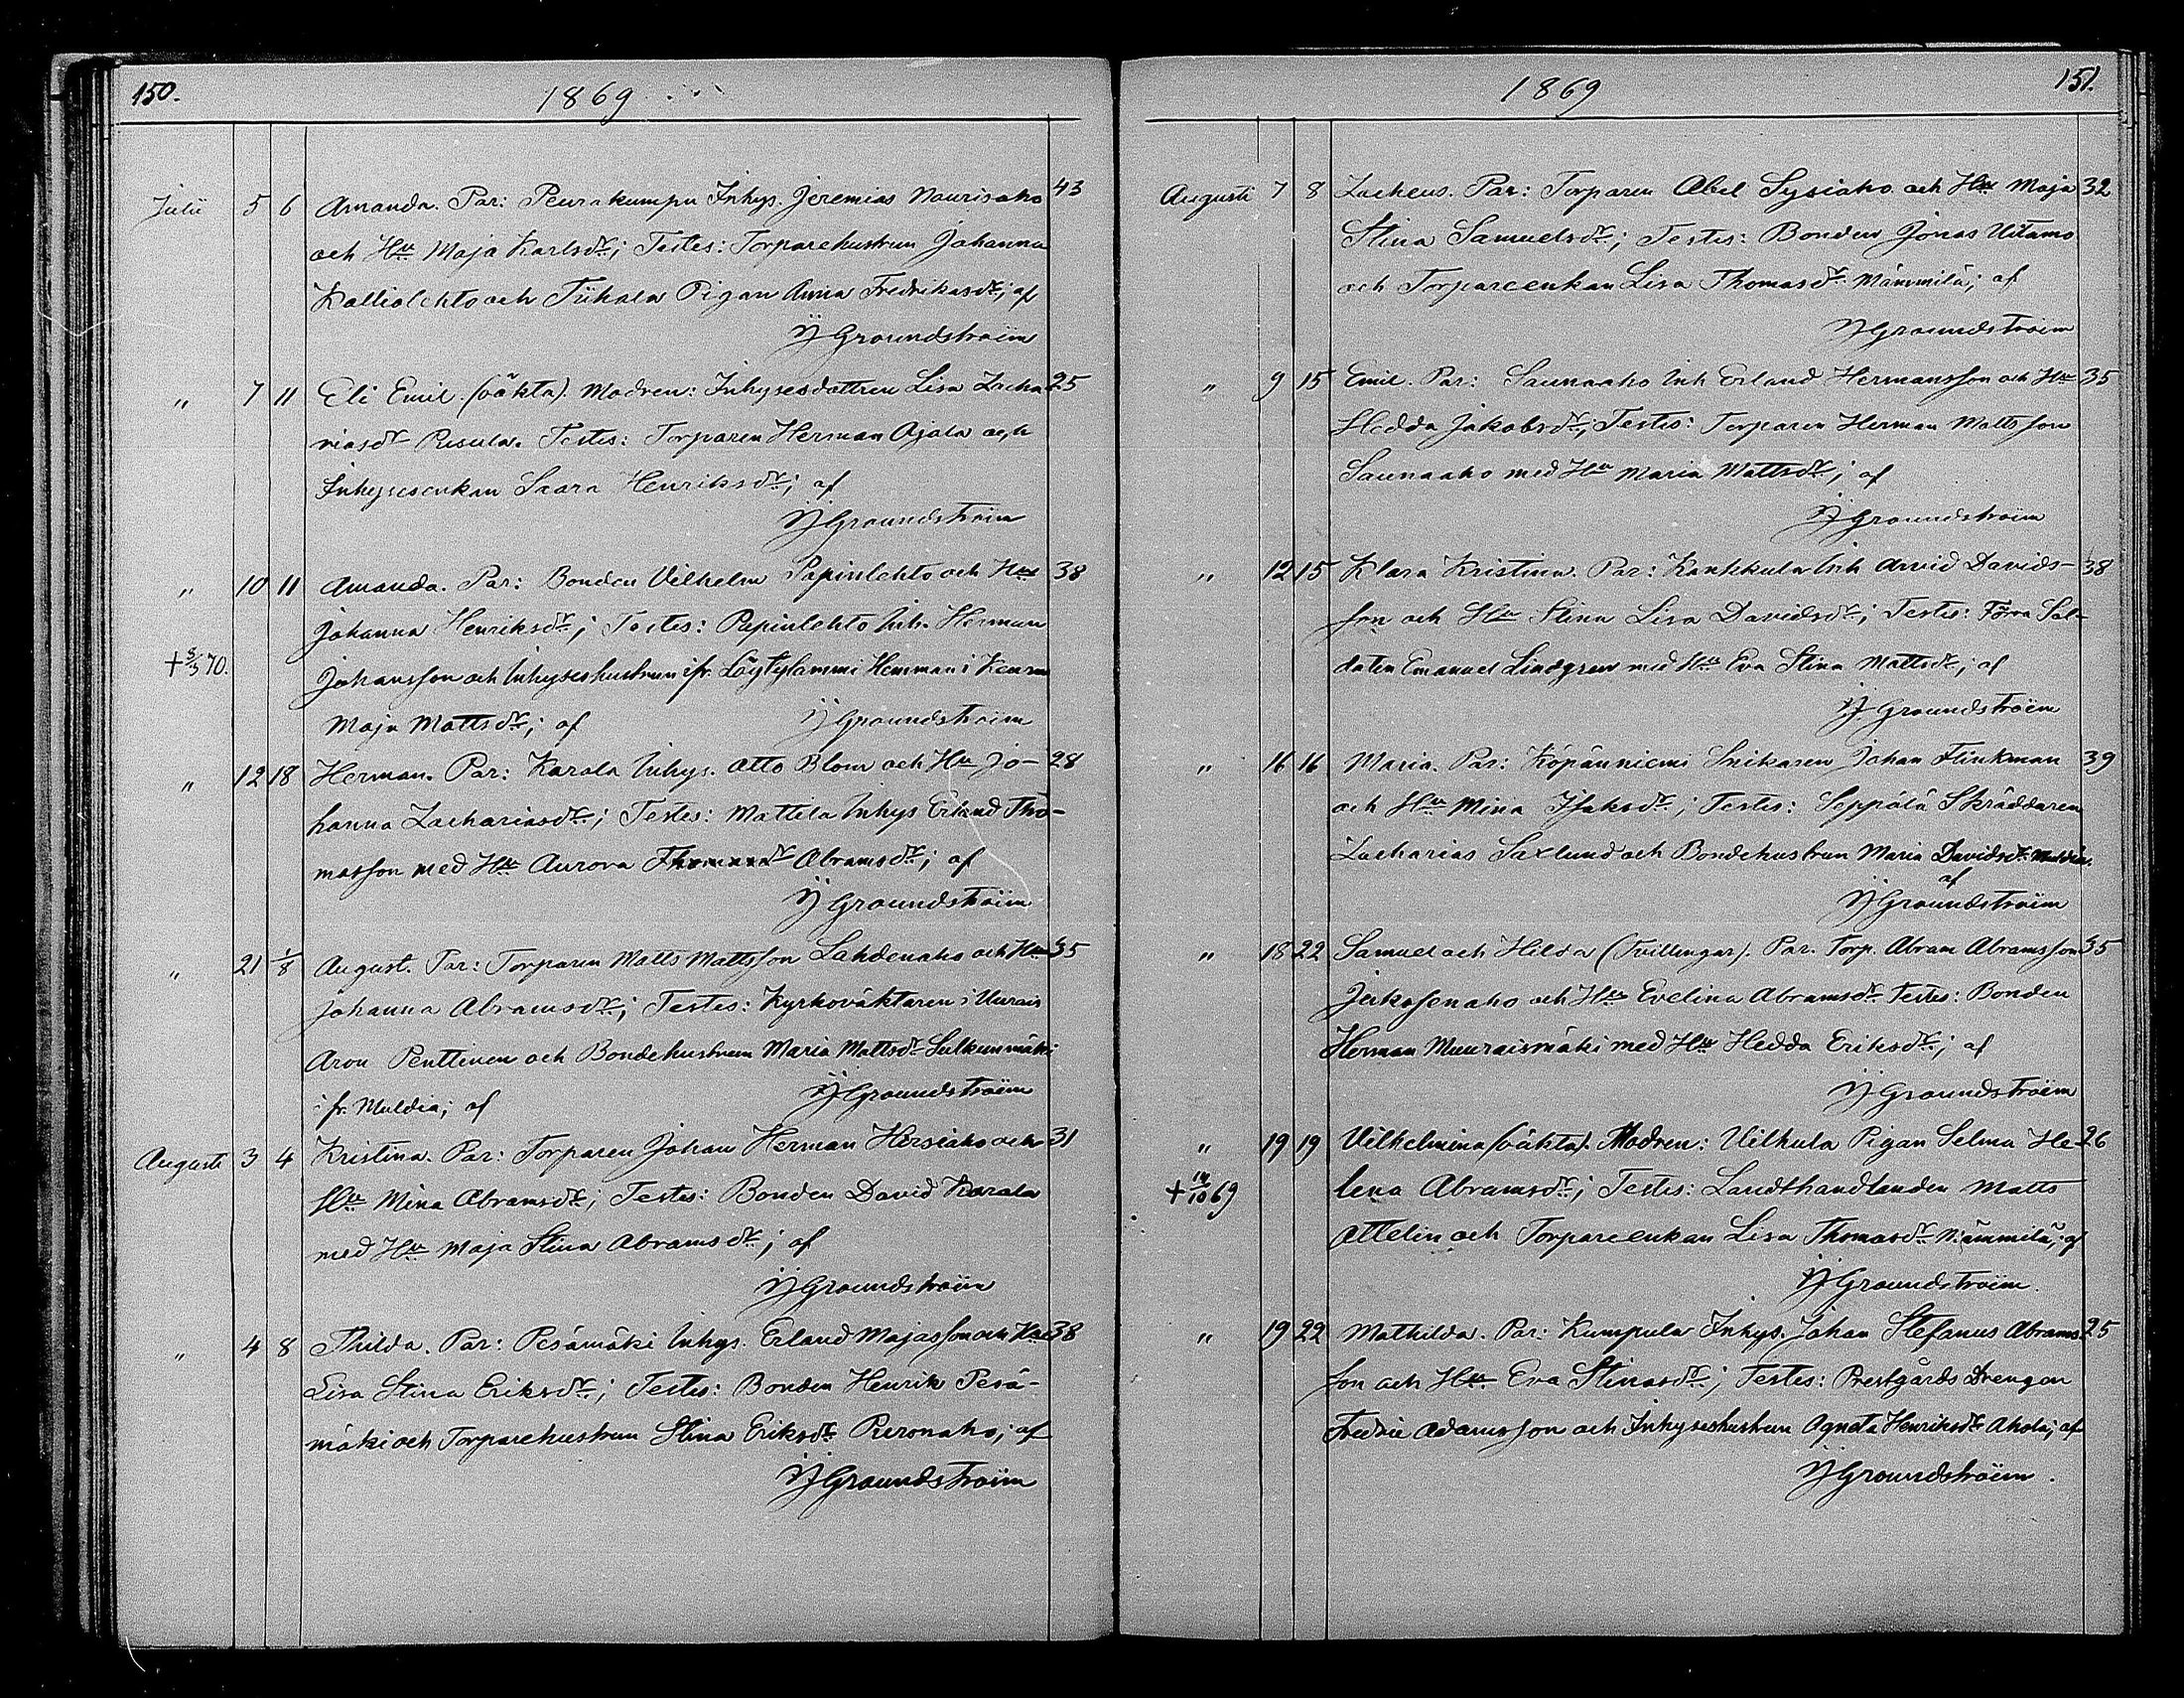 150.
1869
Julii 5 6 Amanda. Par: Peurakumpu Inhys. Jeremias Naurisaho 43
och Hu Maja Karlsdr; Testes: Torparehustrun Johanna
Kalliolehto och Tiikala Pigan Anna Fredrikasdr; af
YJGroundstroëm
" 7 11 Eli Emil (oäkta). Modren: Inhysesdottren Lisa Zacha- 25
riasdr Risula. Testes: Torparen Herman Ojala och
Inhysesenkan Saara Henriksdr; af
YJGroundstroëm
" 10 11 Amanda. Par: Bonden Vilhelm Papinlehto och Hu 38
Johanna Henriksdr; Testes: Papinlehto Inh. Herman
+ 5/3 70. Johansson och Inhyseshustrun ifr. Hemman i Keuru
Maja Mattsdr; af YJGroundstroëm
" 12 18 Herman. Par: Karala Inhys. Otto Blom och Hu Jo- 28
hanna Zachariasdr; Testes: Mattila Inhys Erland Tho-
masson med Hu Aurora Thomasdr Abramsdr; af
YJGroundstroëm
" 21 1/8 August. Par: Torparen Matts Mattsson Lahdenaho och Hu 35
Johanna Abramsdr; Testes: Kyrkoväktaren i Uurais
Aron Penttinen och Bondehustrun Maria Mattsdr Sulkunmäki
ifr. Muldia; af YJGroundstroëm
Augusti 3 4 Kristina. Par: Torparen Johan Herman Hirsiaho och 31
Hu Mina Abramsdr; Testes: Bonden David Karala
med Hu Maja Stina Abramsdr; af
YJGroundstroëm
" 4 8 Thilda. Par: Pesämäki Inhys. Erland Majasson och Hu 38
Lisa Stina Eriksdr; Testes: Bonden Henrik Pesä-
mäki och Torparehustrun Stina Eriksdr Pironaho; af
YJGroundstroëm
1869
151.
Augusti 7 8 Zacheus. Par: Torparen Abel Sysiaho och Hu Maja 32
Stina Samuelsdr; Testes: Bonden Jonas Uitamo
och Torpareenkan Lisa Thomasdr Mämmilä; af
YJGroundstroëm
" 9 15 Emil. Par: Saunaaho Inh Erland Hermansson och Hu 35
Hedda Jakobsdr; Testes: Torparen Herman Mattsson
Saunaaho med Hu Maria Mattsdr; af
YJGroundstroëm
" 12 15 Klara Kristina. Par: Kankkula Inh Arvid Davids- 38
son och Hu Stina Lisa Davidsdr; Testes: Förra Sol-
daten Emanuel Lindgren med Hu Eva Stina Mattsdr; af
YJGroundstroëm
" 16 16 Maria. Par: Köpänniemi Snikaren Johan Flinkman 39
och Hu Mina Isaksdr; Testes: Seppälä Skräddaren
Zacharias Saxlund och Bondehustrun Maria Davidsdr Muldia.
af
YJGroundstroëm
" 18 22 Samuel och Hilda (Tvillingar). Par. Torp. Abram Abramsson 35
Jerkosenaho och Hu Evelina Abramsdr Testes: Bonden
Herman Muuraismäki med Hu Hedda Eriksdr; af
YJGroundstroëm
" 19 19 Vilhelmina (oäkta). Modren: Vilhula Pigan Selma He- 26
+ 14/10 69 lena Abramsdr; Testes: Landthandlanden Matts
Attelin och Torpareenkan Lisa Thomasdr Mämmilä; af
YJGroundstroëm.
" 19 22 Mathilda. Par: Kumpula Inhys. Johan Stefanus Abrams- 25
son och Hu Eva Stinasdr; Testes: Prestgårds Drengen
Fredric Adamsson och Inhyseshustrun Agneta Henriksdr Ahola; af
YJGroundstroëm.